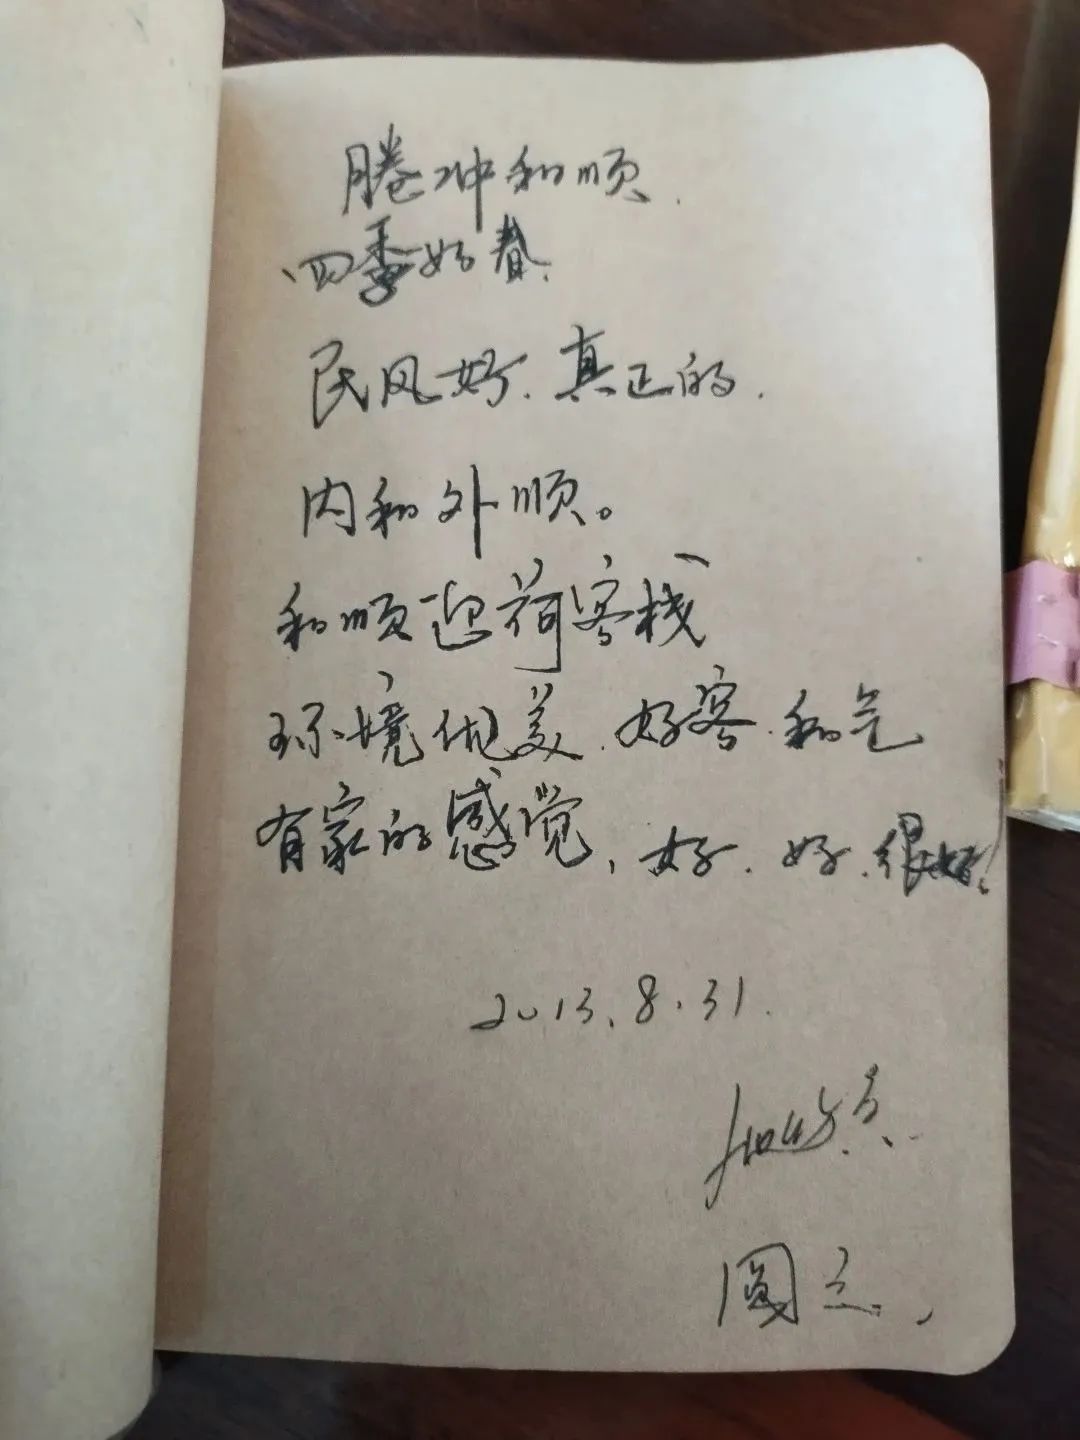 腾冲和顺.
四季如春.
民风好.真正的.
内和外顺。
和顺迎荷客栈
环境优美.好客.和气
有家的感觉,好.好.很好!
2013.8.31.
圆